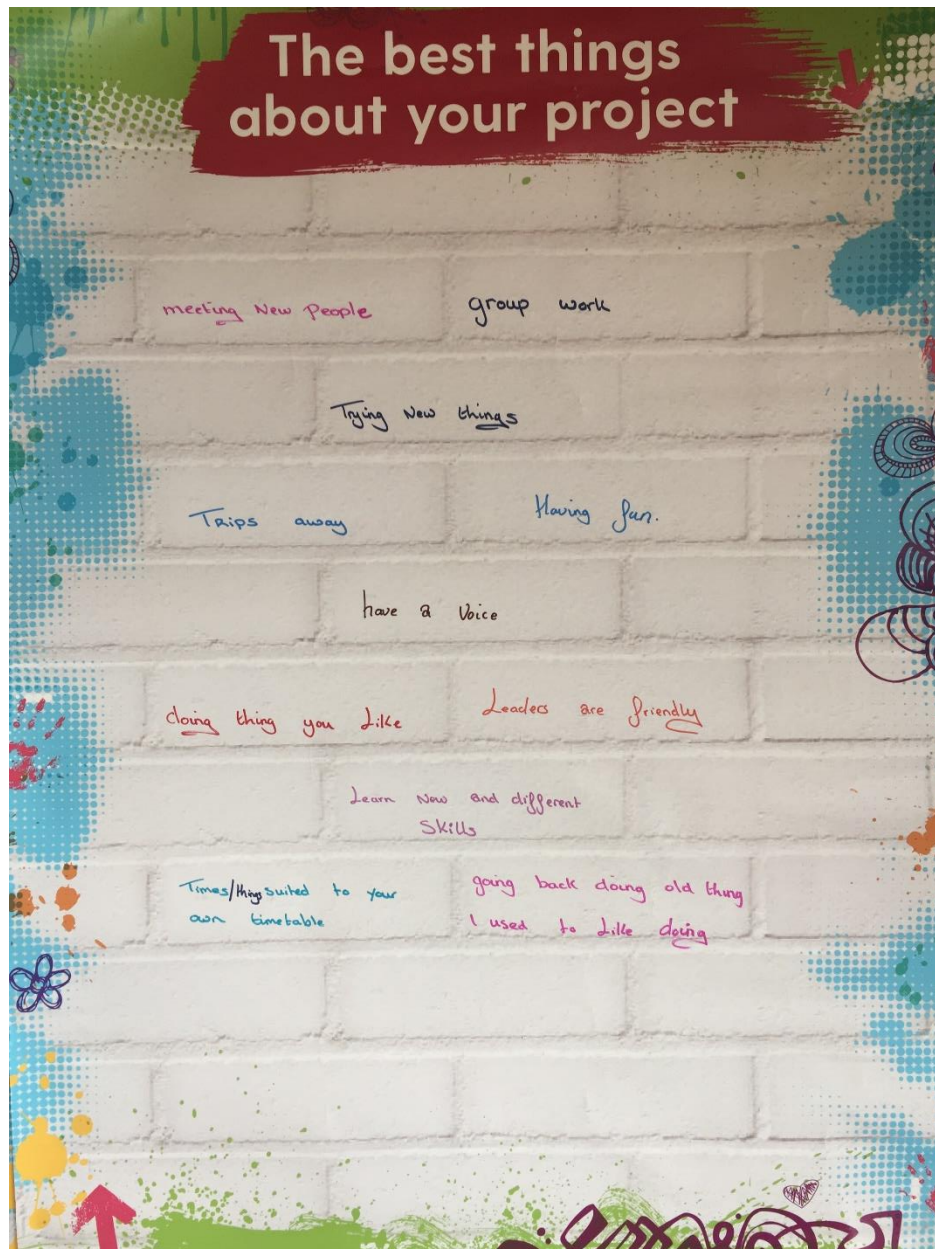 The best things
about your project
meeting New People
group work
Trying New things
Trips away
Having fun.
have a Voice
doing thing you Like
Leaders are friendly
Learn New and different
Skills
Times/things suited to your
own timetable
going back doing old thing
I used to Like doing